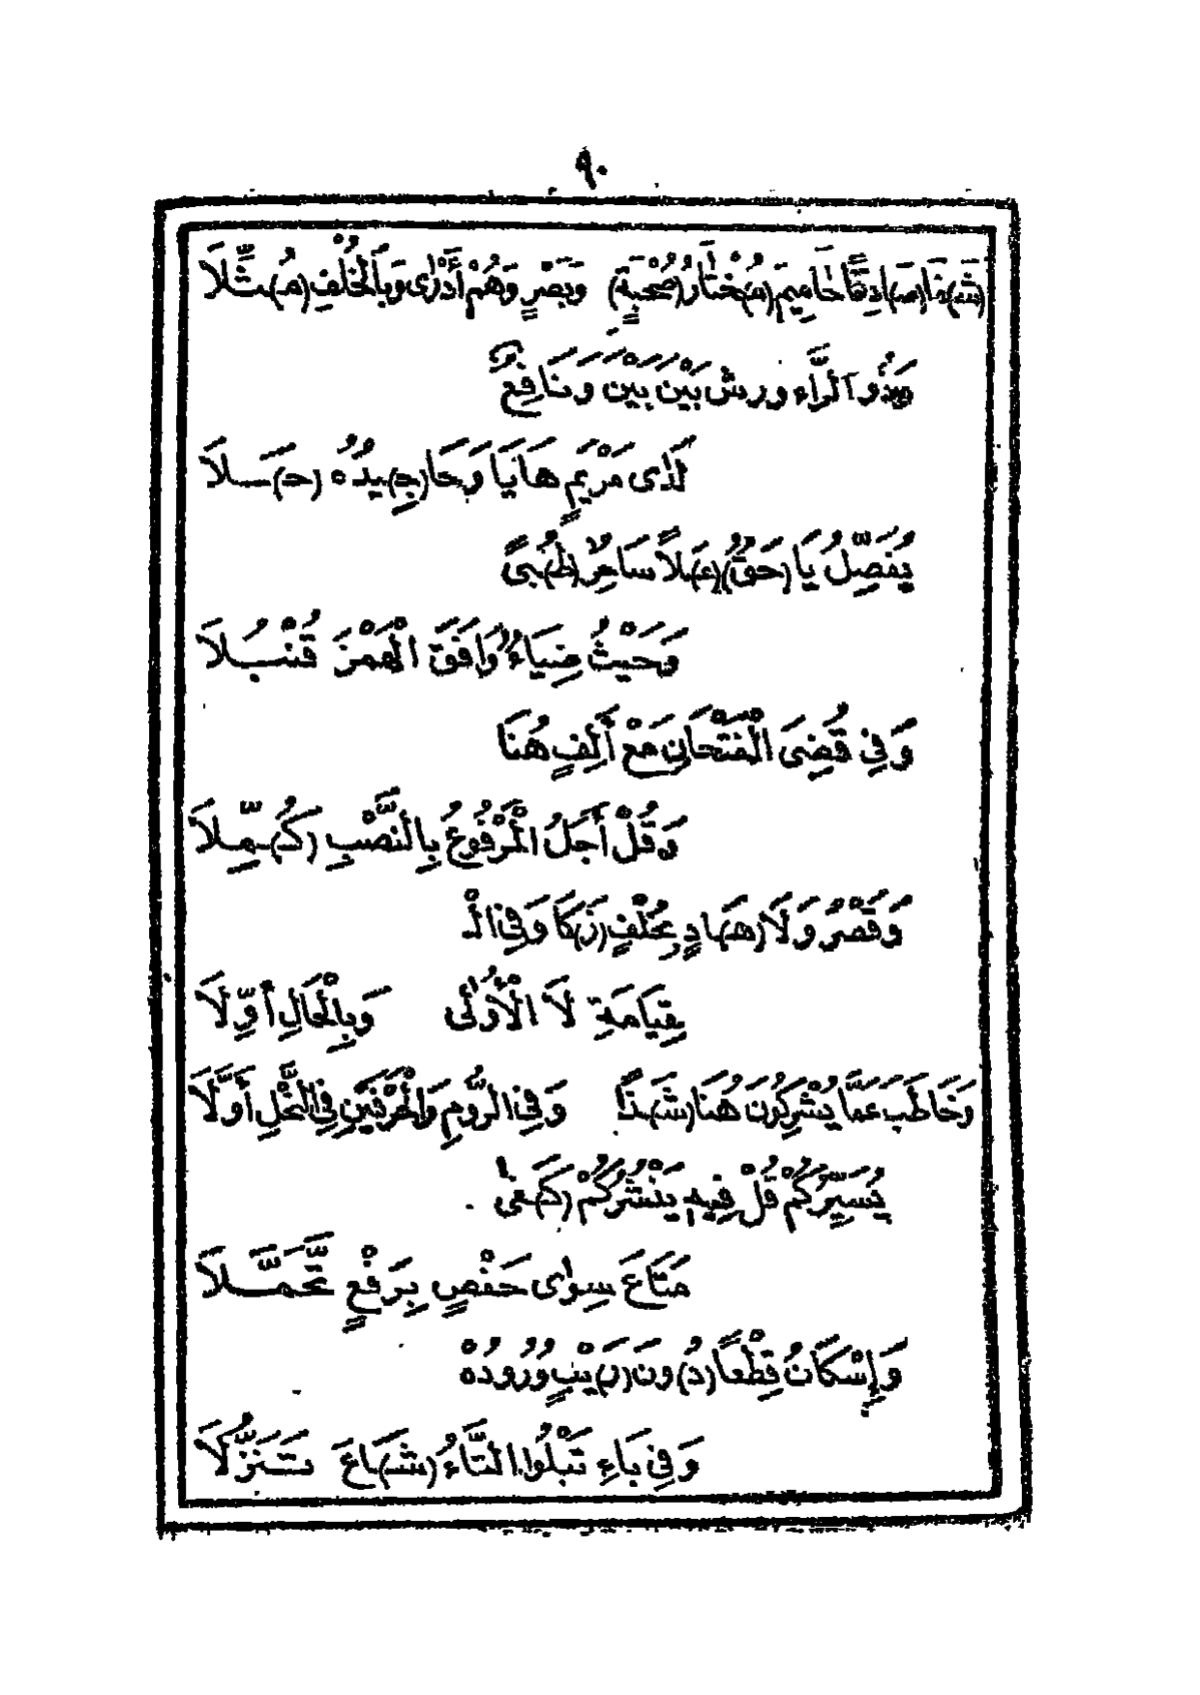 ٩٠
(شَـ)ـفَا (صَـ)ـادِقًا حَامِيمَ (مُـ)ـخْتَارُ (صُحْبَةٍ) وَبَصْرٍ وَهُمْ أَدْرٰى وَبِالْخُلْفِ (مُـ)ـثِّلَا
وَذُو الرَّاءِ ورش بَيْنَ بَيْنَ وَنَافِعٌ
لَدٰى مَرْيَمٍ هَايَا وَحَا (جِـ)ـيدُهُ (حَـ)ـلَا
يُفَصِّلُ يَا (حَقٍّ) (عُـ)ـلًا سَاحِرٌ (ظُـ)ـبًى
وَحَيْثُ ضِيَاءً وَافَقَ الْهَمْزَ قُنْبُلَا
وَفِي قُضِىَ الْفَتْحَانِ مَعْ أَلِفٍ هُنَا
وَقُلْ أَجَلُ الْمَرْفُوعُ بِالنَّصْبِ (كُـ)ـمِّلَا
وَقَصْرُ وَلَا (هَـ)ـادٍ بِخُلْفٍ (زَ)كَا وَفِي الْـ
قِيَامَةِ لَا الْأُولَى وَبِالْحَالِ أُوِّلَا
وَخَاطَبَ عَمَّا يُشْرِكُونَ هُنَا (شَـ)ـذًا وَفِي الرُّومِ وَالْحَرْفَيْنِ فِي النَّحْلِ أَوَّلَا
يُسَيِّرُكُمْ قُلْ فِيهِ يَنْشُرُكُمْ (كَـ)ـفَى
مَتَاعَ سِوٰى حَفْصٍ بِرَفْعٍ تَحَمَّلَا
وَإِسْكَانُ قِطْعًا (دُ)ونَ (رَ)يْبٍ وُرُودُهُ
وَفِي بَاءِ تَبْلُوا التَّاءُ (شَـ)ـاعَ تَنَزُّلَا